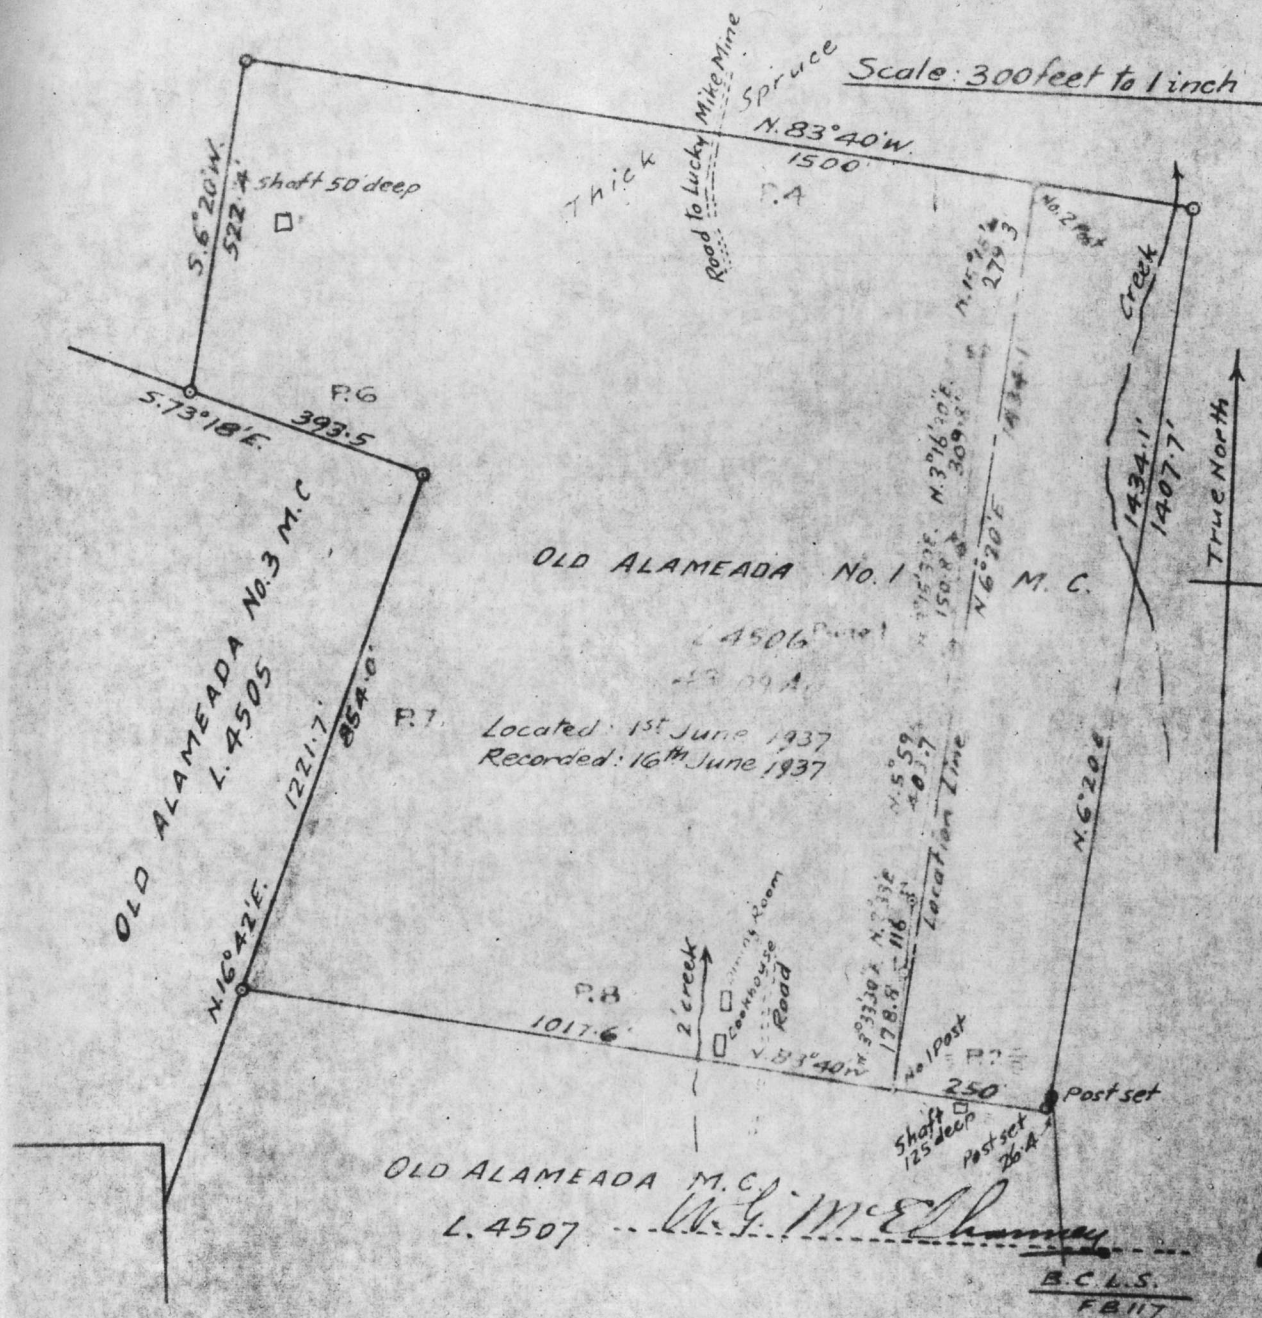 Scale: 300 feet to 1 inch
Road to Lucky Mike Mine
Thick Spruce
N.83°40'W.
1500
P.4
S.6°20'W.
522.4'
Shaft 50' deep
No. 2 Post
N.15°15'
279.3
Creek
P.6
S.73°18'E.
393.5
N.3°16'20"E.
309.8
1434.1
1434.1'
1407.7'
True North
OLD ALAMEADA No.3 M.C
L.4505
OLD ALAMEADA No.1 M.C.
150.8
N.6°20'E
L 4506
N.16°42'E.
1221.7'
854.0'
P.7.
Located: 1st June 1937
Recorded: 16th June 1937
N.5°59'
403.7
Location Line
N.6°20'E
P.8
1017.6'
2' creek
Dining Room
Cookhouse
Road
N.83°40'W
N.3°33'30"E
178.8
116
No.1 Post
250
Post set
Shaft
125' deep
Post set
26.4
OLD ALAMEADA M.C.
L.4507
W.G. McElhanney
B.C.L.S.
F B 117